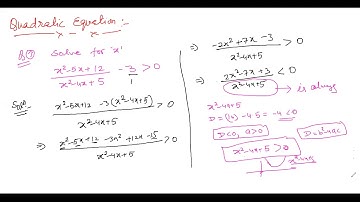 Quadratic Equation :-
Q① Solve for 'x'
(x²-5x+12)/(x²-4x+5) - 3/1 > 0
Solⁿ: (x²-5x+12 - 3(x²-4x+5))/(x²-4x+5) > 0
⇒ (x²-5x+12 - 3x²+12x-15)/(x²-4x+5) > 0
⇒ (-2x²+7x-3)/(x²-4x+5) > 0
⇒ (2x²-7x+3)/(x²-4x+5) < 0
is always
x²-4x+5
D = (16) - 4·5 = -4 < 0
D<0, a>0
D = b²-4ac
x²-4x+5 > 0
x²-4x+5